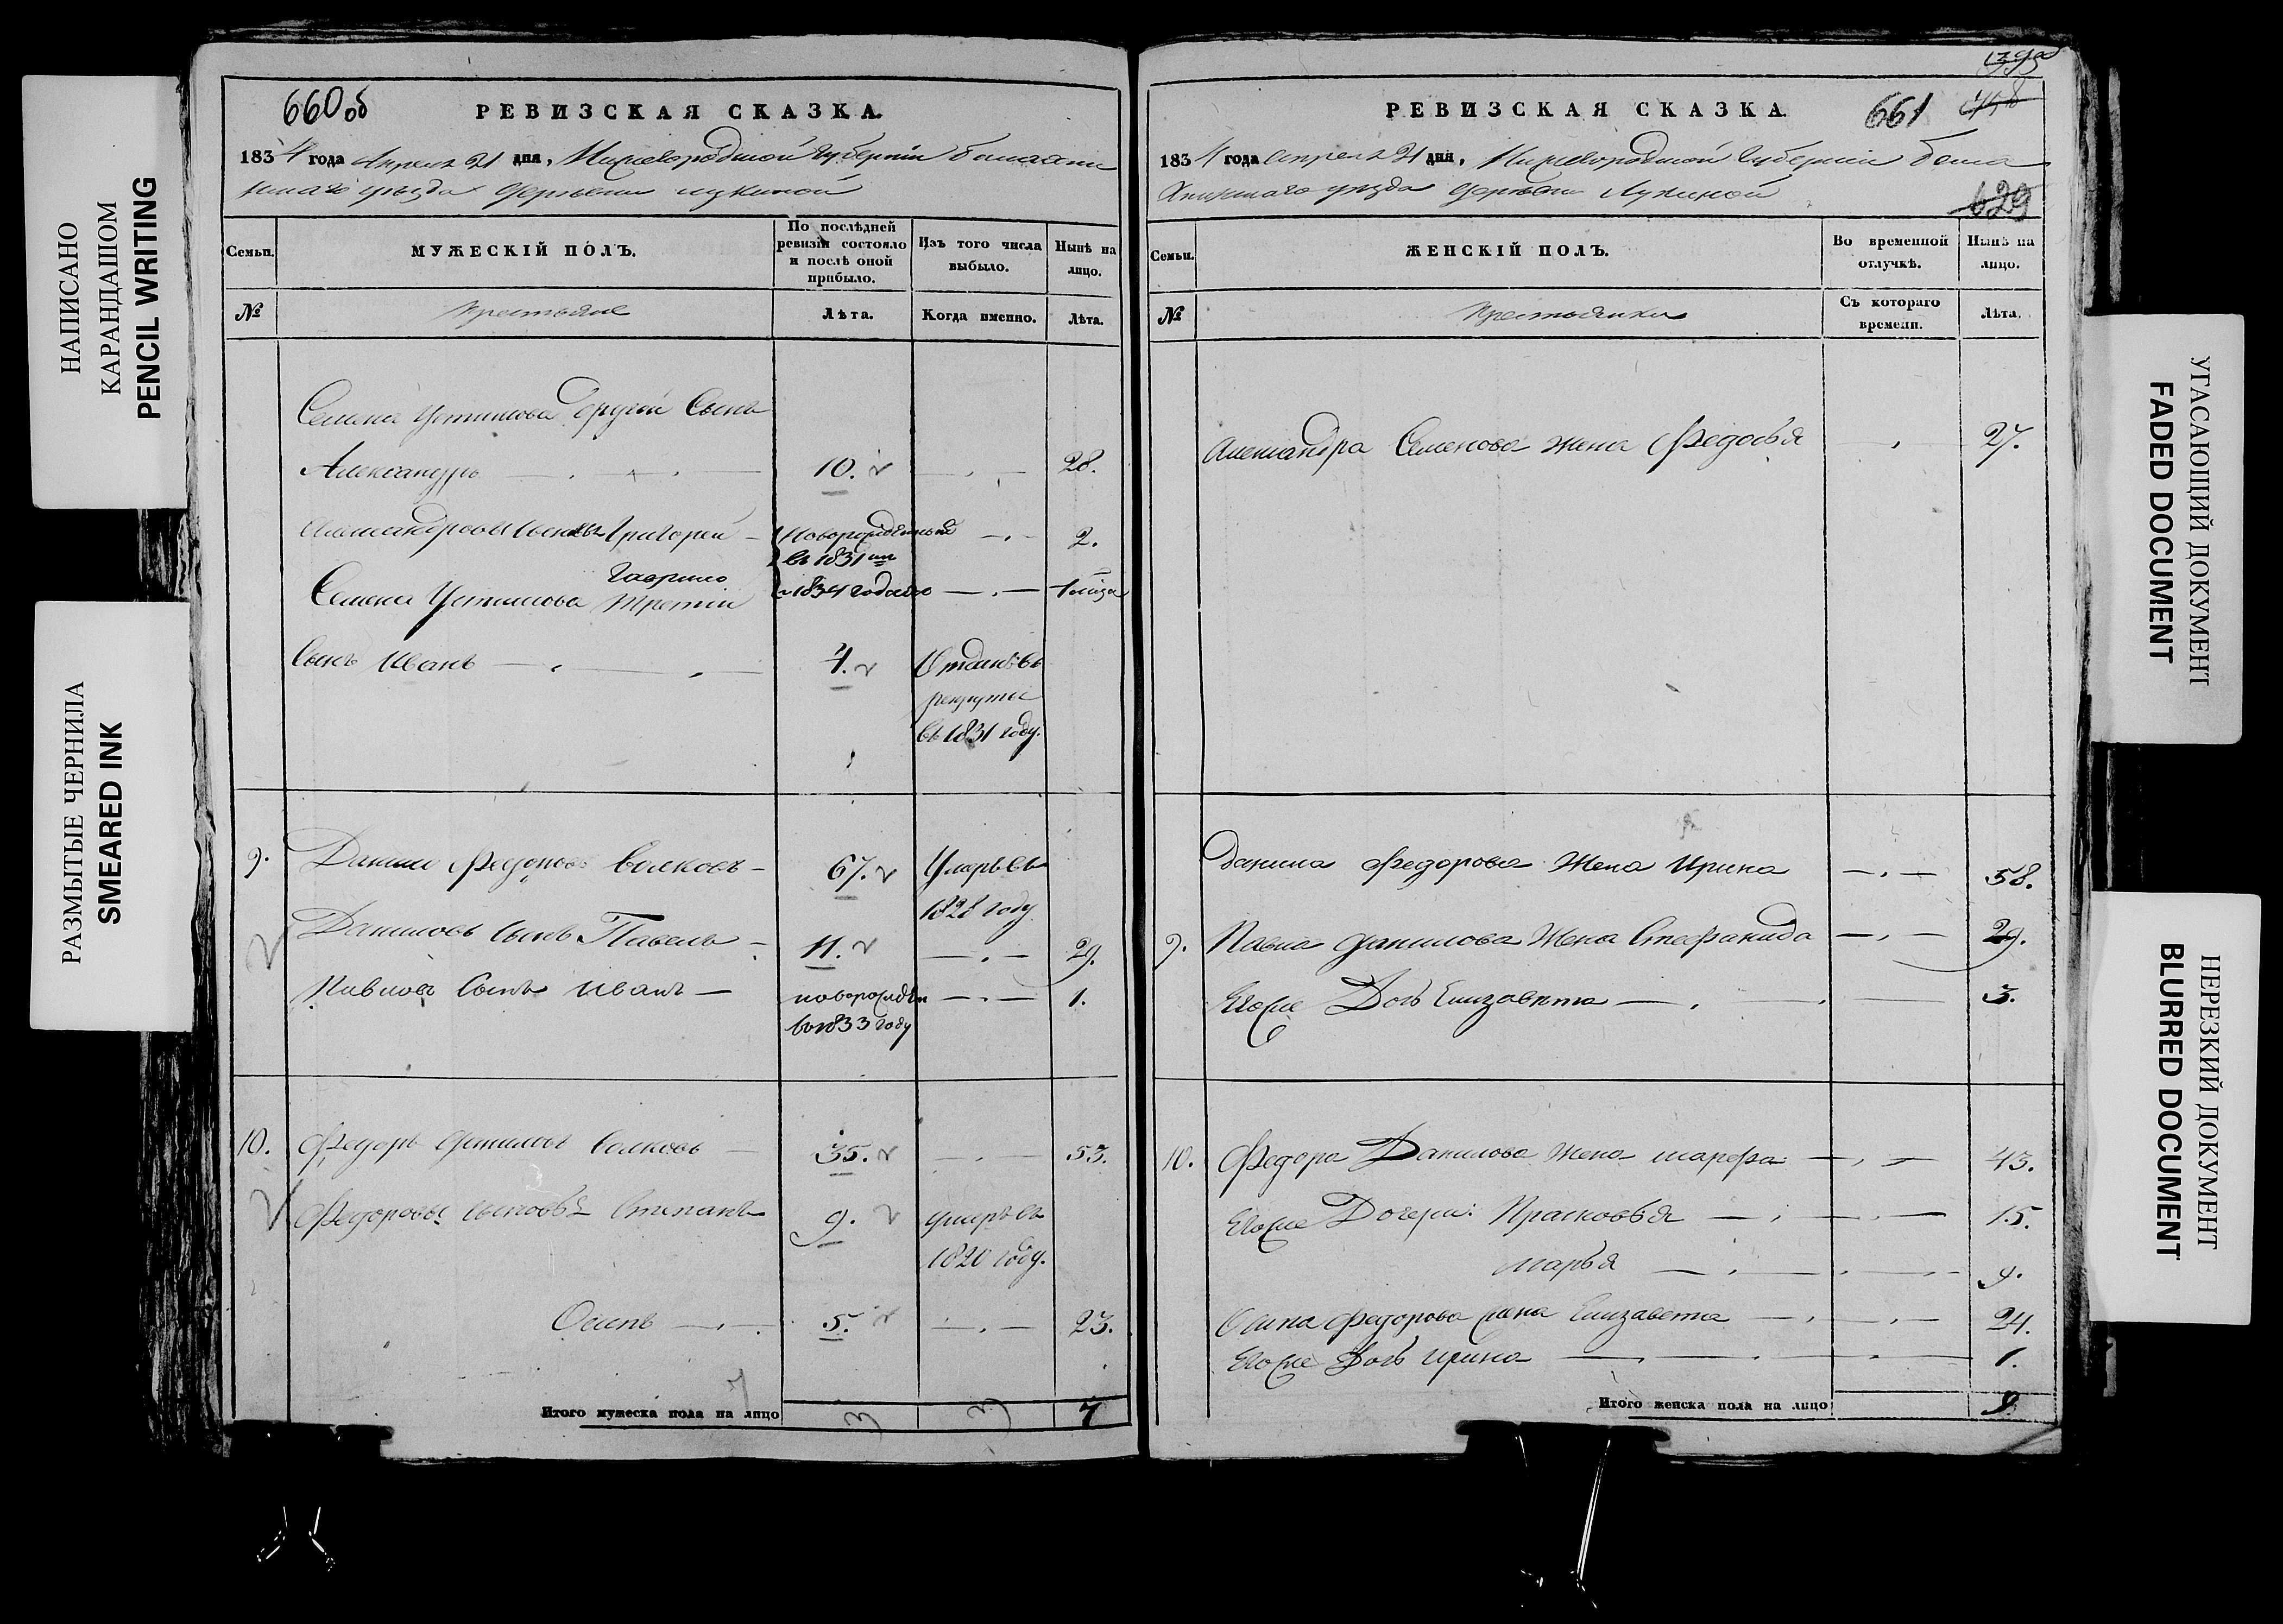 НАПИСАНО
КАРАНДАШОМ
PENCIL WRITING
РАЗМЫТЫЕ ЧЕРНИЛА
SMEARED INK
660 об
РЕВИЗСКАЯ СКАЗКА.
1834 года Апреля 21 дня, Нижегородской губернии балахни
нскаго уѣзда деревни лукиной
Семьи.
МУЖЕСКІЙ ПОЛЪ.
По послѣдней ревизіи состояло и послѣ оной прибыло.
Изъ того числа выбыло.
Нынѣ на лицо.
№
крестьяне
Лѣта.
Когда именно.
Лѣта.
Семена Устинова другой Сынъ
Александръ 10. 28.
Александровы Сыновья Григорей Новорожденный 2.
въ 1831 мъ
Гаврило
Семена Устинова третій 1834 годахъ 1
Сынъ Иванъ 4. Отданъ въ
рекруты
въ 1831 году.
9. Данило Федоровъ Волковъ 67. Умеръ въ
1828 году
Даниловъ Сынъ Павелъ 11. 29.
Павловъ Сынъ Иванъ новорожден 1.
въ 1833 году
10. Федоръ Даниловъ Волковъ 35. 53.
Федоровы сыновья Степанъ 9. умеръ въ
1820 году.
Осипъ 5. 23.
Итого мужеска пола на лицо 3 3 7
661
629
РЕВИЗСКАЯ СКАЗКА
1834 года апреля 21 дня, Нижегородской Губерніи бала
хнинскаго уѣзда деревни Лукиной
Семьи.
ЖЕНСКІЙ ПОЛЪ.
Во временной отлучкѣ.
Нынѣ на лицо.
№
крестьянки
Съ котораго времени.
Лѣта.
Александра Семенова жена Федосья 27.
Данила Федорова Жена Ирина 58.
9. Павла данилова Жена Стефанида 29.
Егоже Дочь Елизавета 3.
10. Федора Данилова жена марфа 43.
Егоже Дочери: Прасковья 15.
марья 9.
Осипа Федорова жена Елизавета 24.
Егоже Дочь Ирина 1.
Итого женска пола на лицо 9.
УГАСАЮЩИЙ ДОКУМЕНТ
FADED DOCUMENT
НЕРЕЗКИЙ ДОКУМЕНТ
BLURRED DOCUMENT